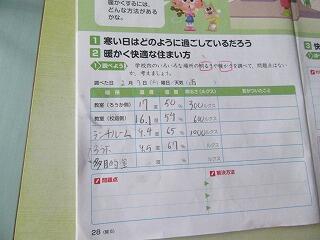 暖かくするには、
どんな方法がある
かな。
1 寒い日はどのように過ごしているだろう
2 暖かく快適な住まい方
1 調べよう 学校内のいろいろな場所の明るさや暖かさを調べて、問題点はない
か、考えましょう。
調べた日 2月7日( )曜日・天気 雨
場所 温度 湿度 明るさ(ルクス) 気がついたこと
教室(ろうか側) 17度 50% 300ルクス
教室(校庭側) 16.1度 54% 600ルクス
ランチルーム 9.4度 65% ルクス
ろうか 9.5度 67% ルクス
多目的室
問題点 解決方法
28